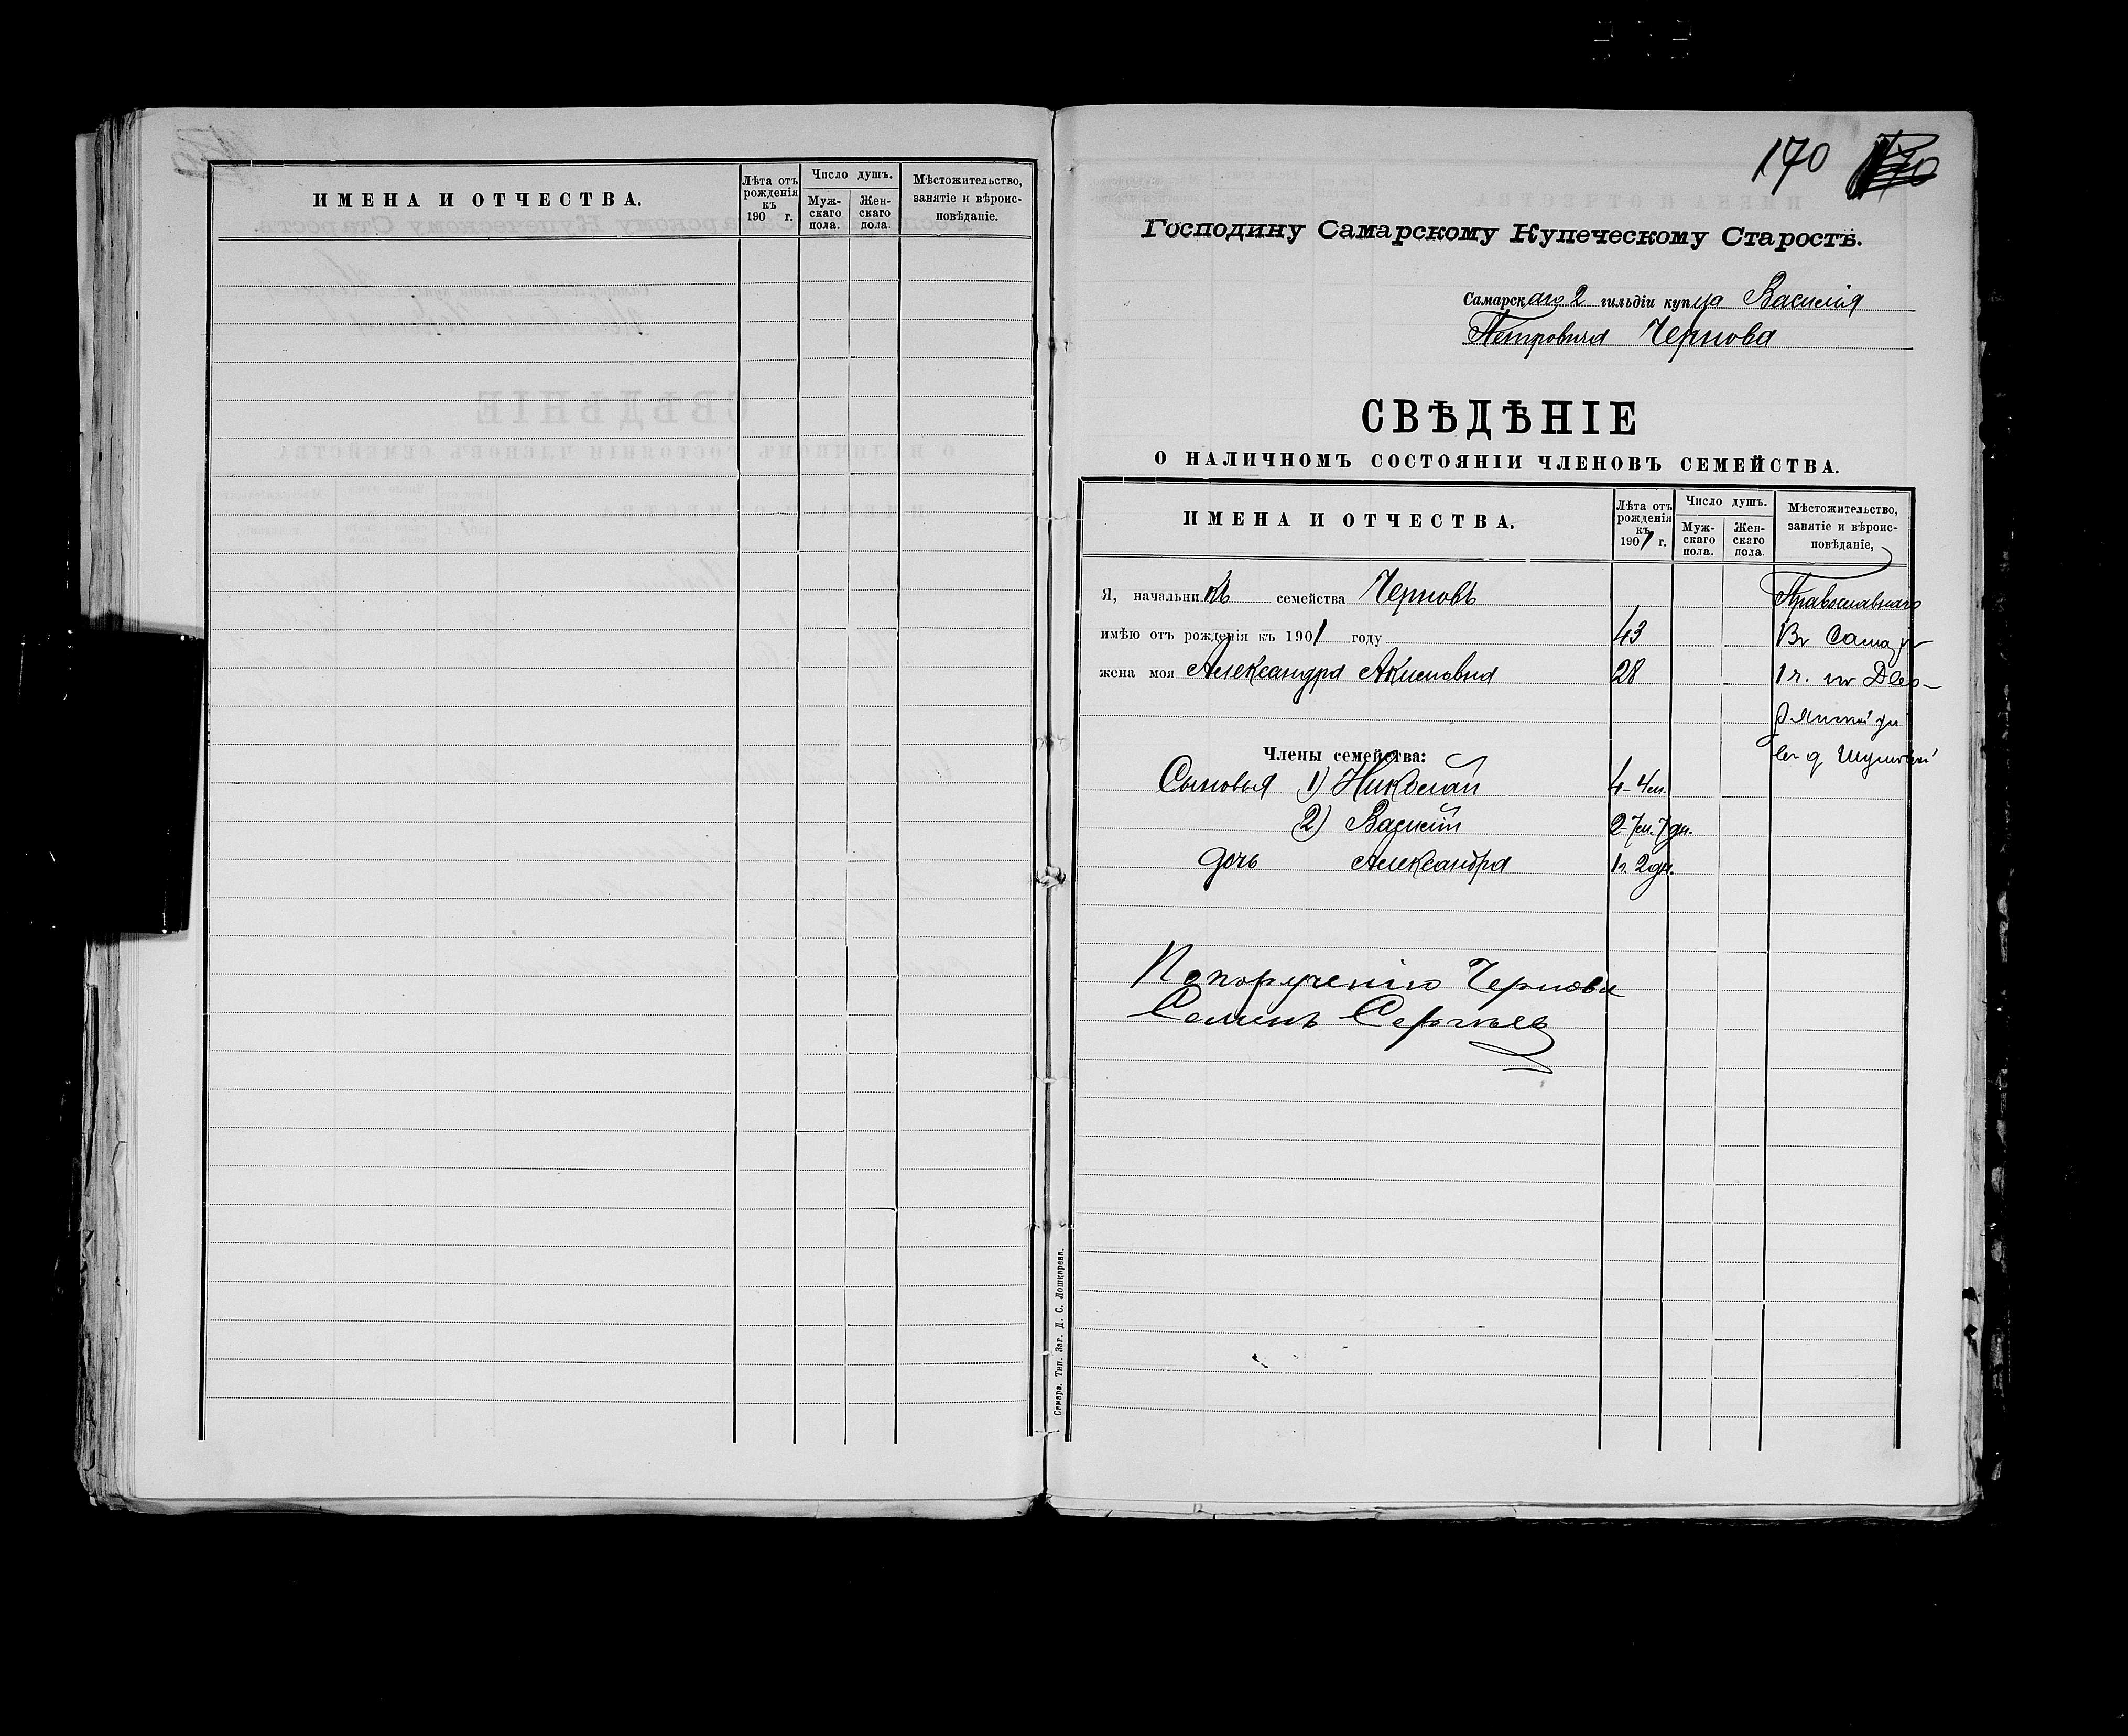 ИМЕНА И ОТЧЕСТВА.
Лѣта отъ рожденія къ 190 г.
Число душъ.
Муж-скаго пола.
Жен-скаго пола.
Мѣстожительство, занятіе и вѣроис-повѣданіе.
170
Господину Самарскому Купеческому Старостѣ.
Самарскаго 2 гильдіи купца Василія
Петровича Чернова
СВѢДѢНІЕ
О НАЛИЧНОМЪ СОСТОЯНІИ ЧЛЕНОВЪ СЕМЕЙСТВА.
ИМЕНА И ОТЧЕСТВА.
Лѣта отъ рожденія къ 1901 г.
Число душъ.
Муж-скаго пола.
Жен-скаго пола.
Мѣстожительство, занятіе и вѣроис-повѣданіе,
Я, начальникъ семейства Черновъ Православнаго
имѣю отъ рожденія къ 1901 году 43 Въ Сама
жена моя Александра Акимовна 28 1 ч. по Дво-
рянской ул
Члены семейства: въ д
Сыновья 1) Николай 4-4м.
2) Василій 2-7м. 7дн.
дочь Александра 1г. 2дн.
По порученію Чернова
Семенъ Сергѣев
Самара. Тип. Заг. Д. С. Лошкарева.